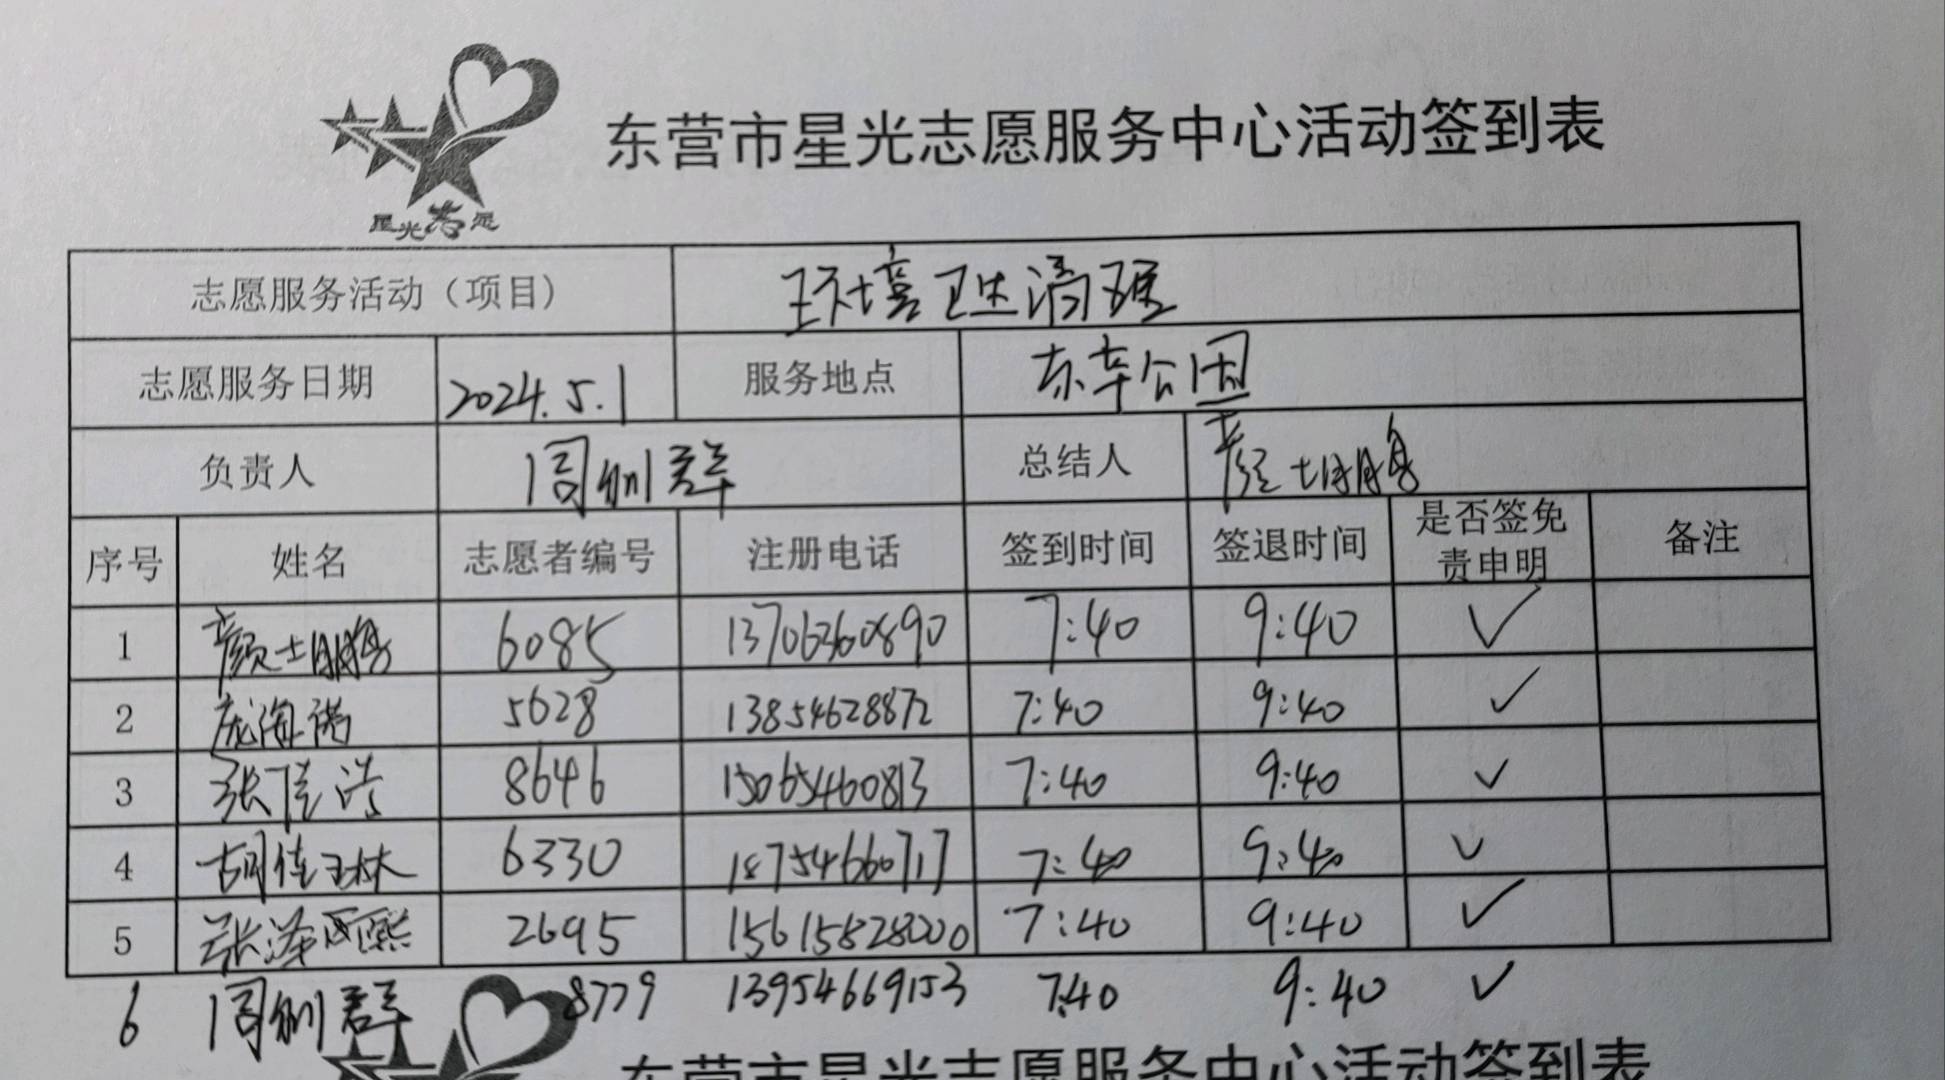 星光志愿
东营市星光志愿服务中心活动签到表
志愿服务活动（项目） 环境卫生清理
志愿服务日期 2024.5.1 服务地点 东辛公园
负责人 周侧群 总结人 颜士鹏
序号 姓名 志愿者编号 注册电话 签到时间 签退时间 是否签免责申明 备注
1 颜士鹏 6085 13706360890 7:40 9:40 ✓
2 庞海诺 5628 13854628872 7:40 9:40 ✓
3 张佳浩 8646 15065460813 7:40 9:40 ✓
4 胡佳琳 6330 18754660717 7:40 9:40 ✓
5 张泽熙 2695 15615828000 7:40 9:40 ✓
6 周侧群 8779 13954669153 7:40 9:40 ✓
东营市星光志愿服务中心活动签到表